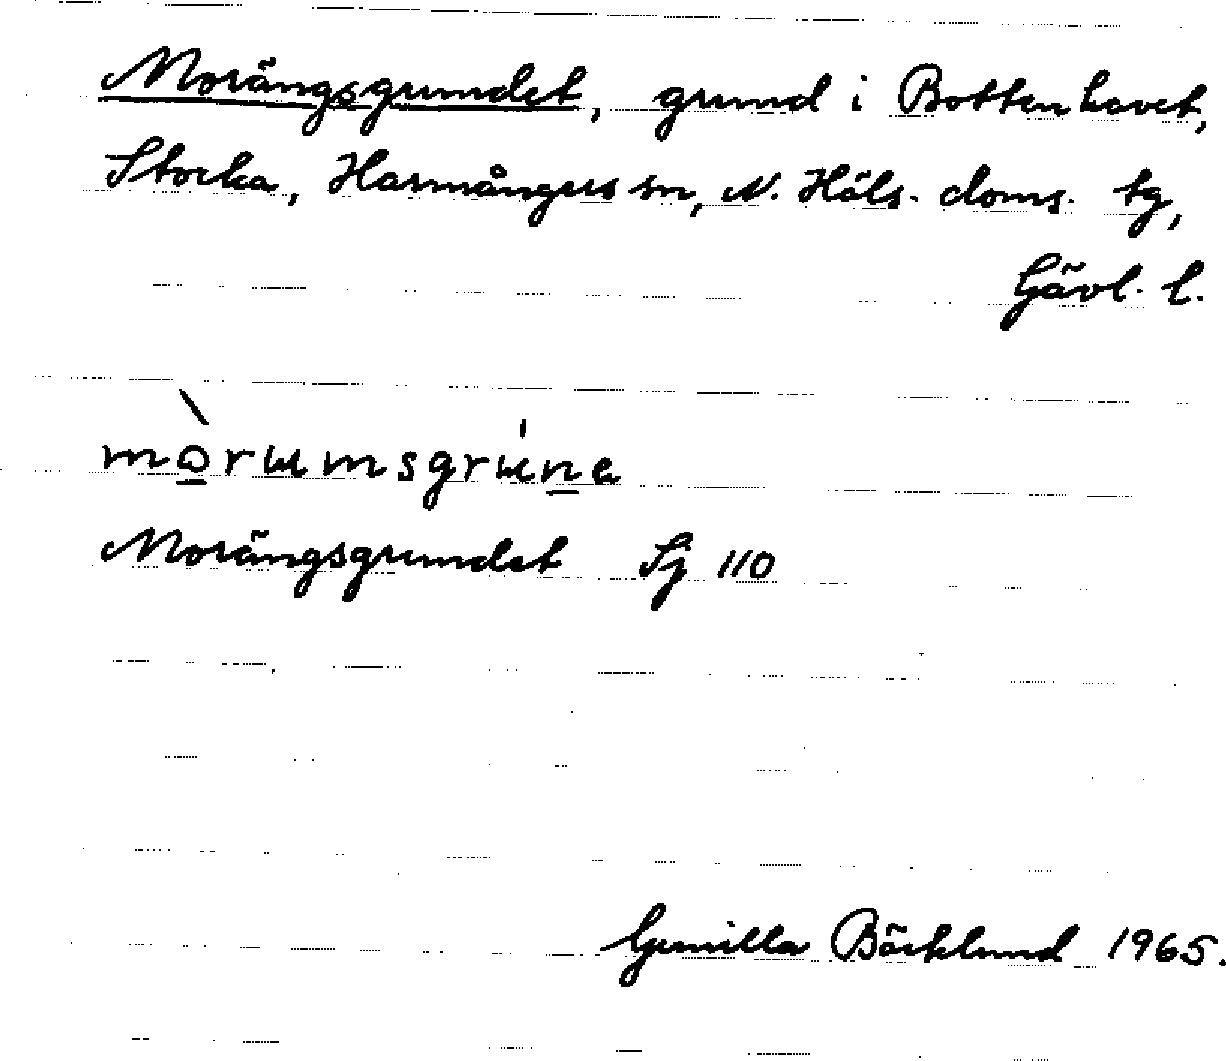 Morängsgrundet, grund i Bottenhavet,
Stocka, Harmångers sn, N. Häls. doms. tg,
Gävl. l.
mòrumsgruńe
Morängsgrundet Sj 110
Gunilla Bäcklund 1965.